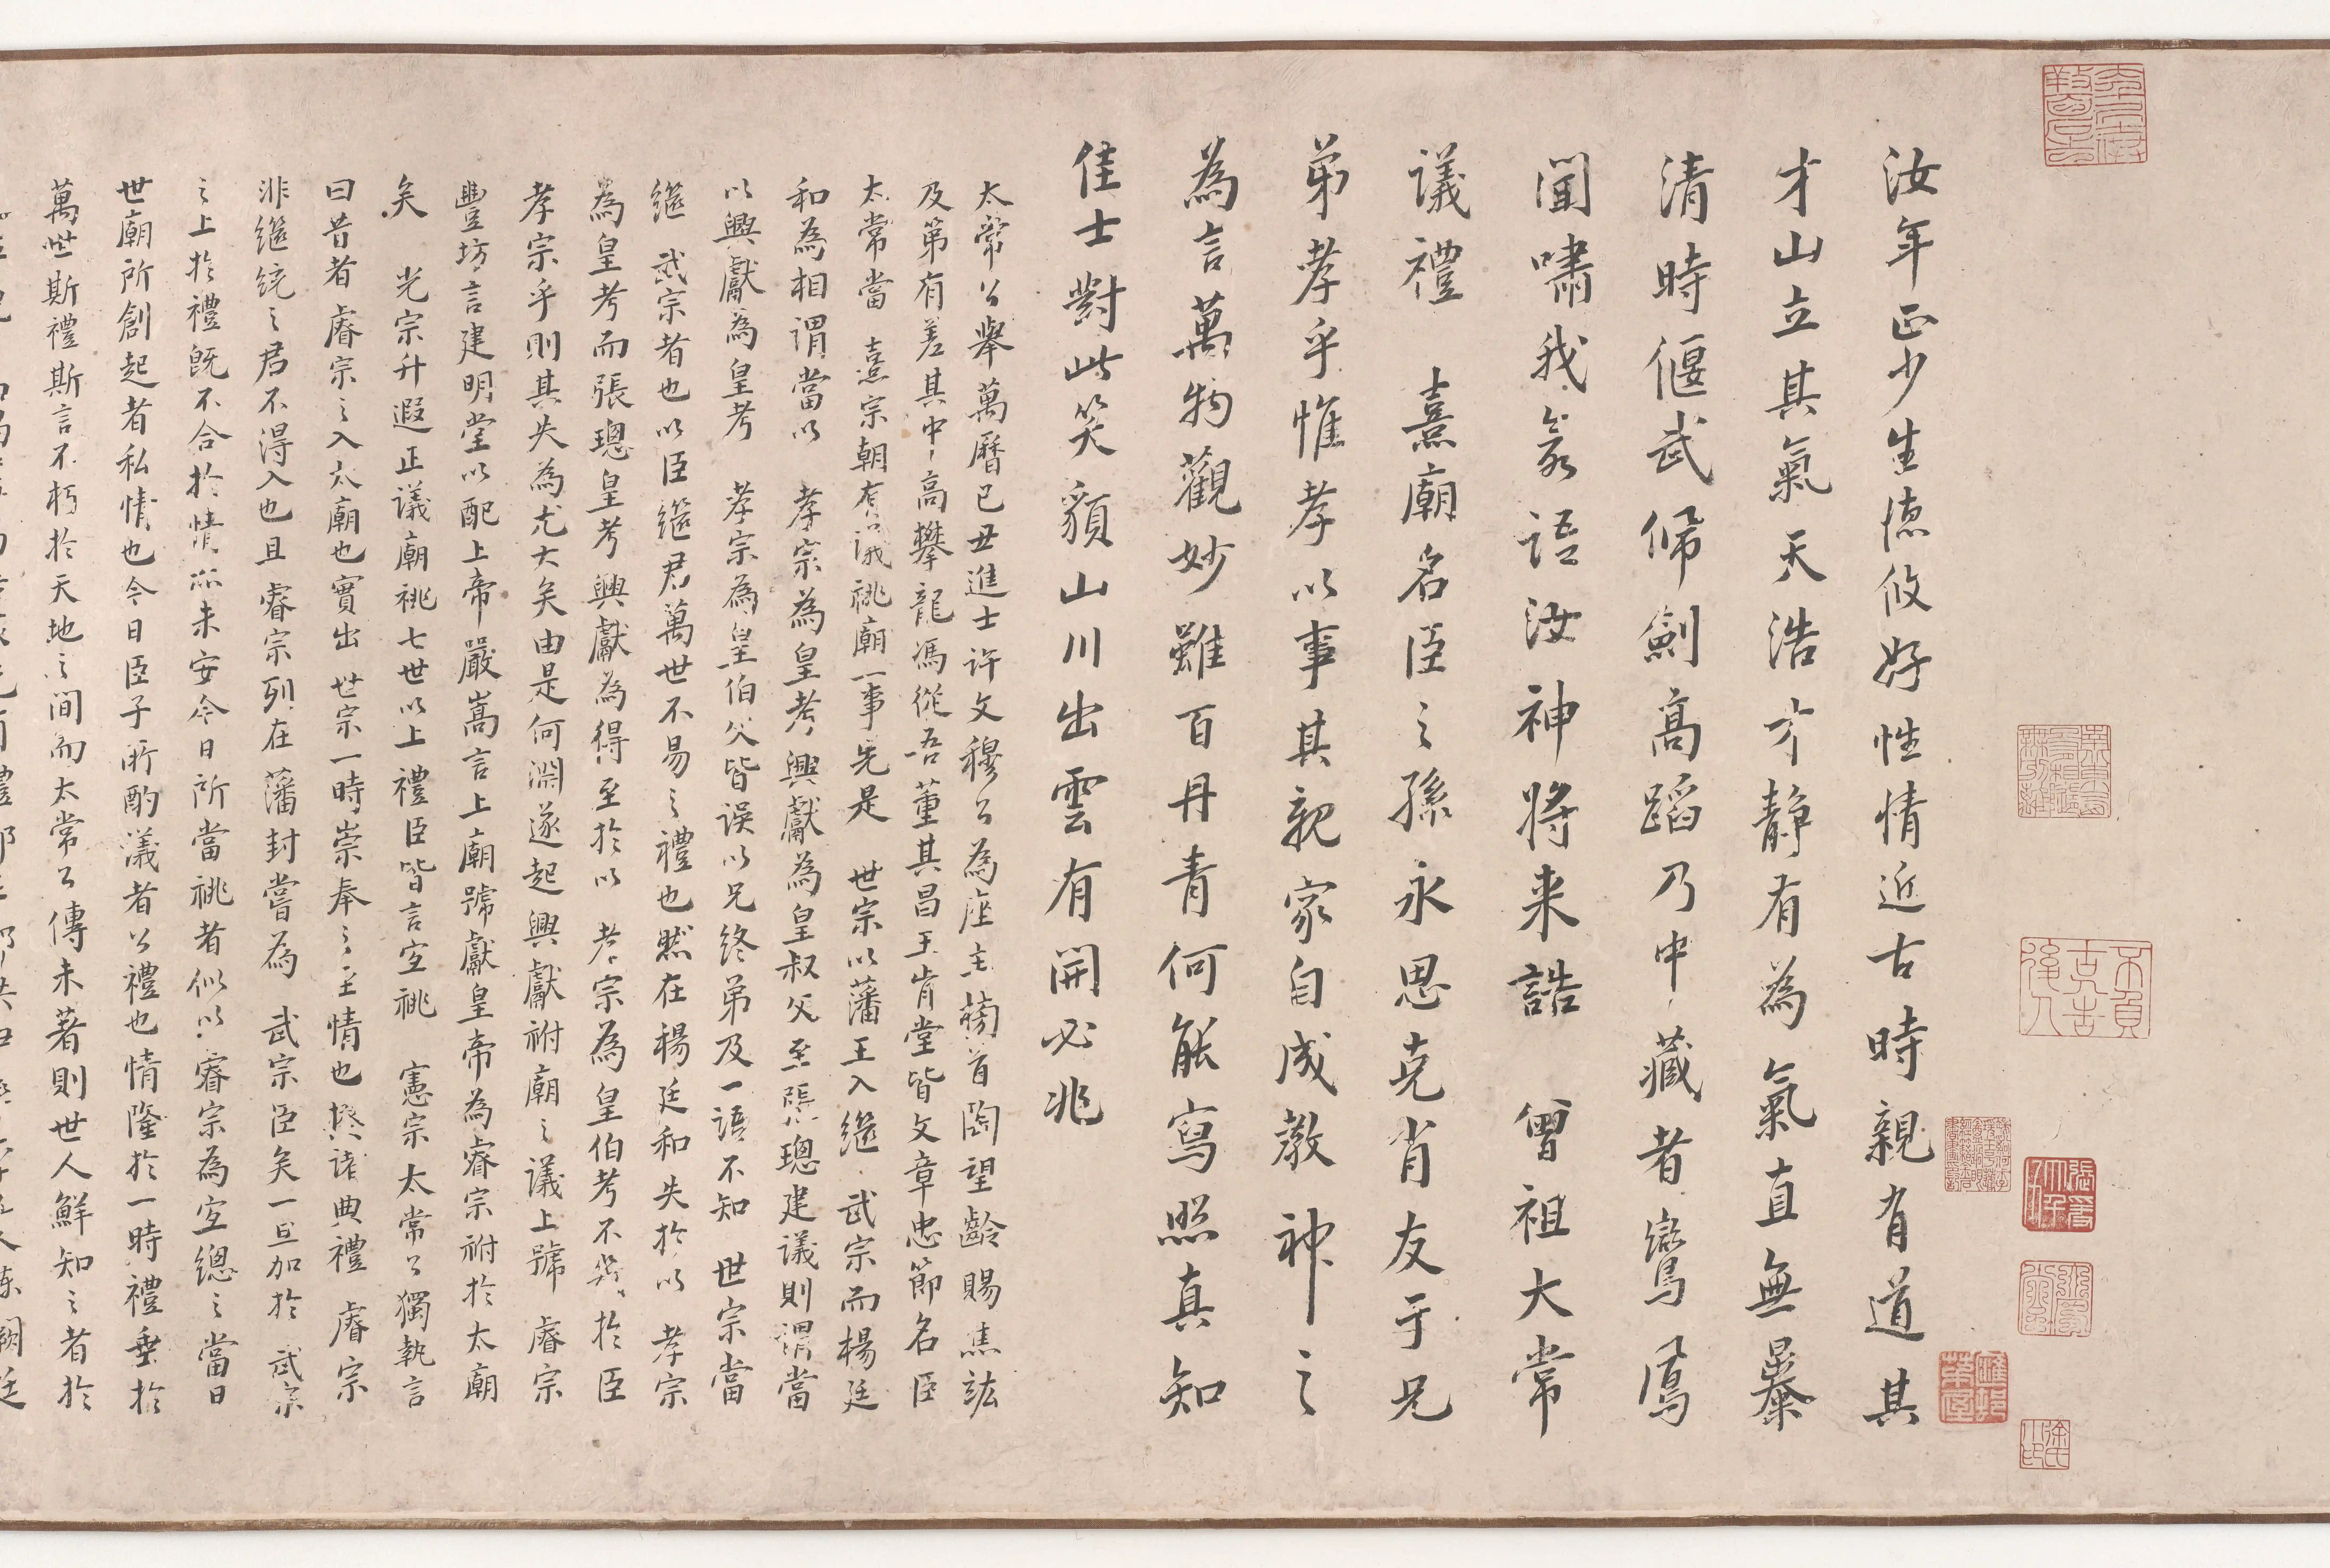 汝年正少生德攸好性情近古時親有道其
才山立其氣天浩才靜有為氣直無暴
清時偃武佩劍高蹈乃中藏者鸞鳳
聞嘯我氣語汝神將来誥 曾祖大常
議禮 熹廟名臣之孫永思克肖友于兄
弟孝乎惟孝以事其親家自成教神之
為言萬物觀妙雖百丹青何能寫照真知
佳士對此笑貌山川出雲有開必兆
太常公舉萬曆己丑進士许文穆公為座主榜首陶望齡賜焦竑
及第有差其中高攀龍馮從吾董其昌王肯堂皆文章忠節名臣
太常當 熹宗朝有議祧廟一事先是 世宗以藩王入繼 武宗而楊廷
和為相謂當以 孝宗為皇考興獻為皇叔父至張璁建議則謂當
以興獻為皇考 孝宗為皇伯父皆误以兄終弟及一語不知 世宗當
繼 武宗者也以臣繼君萬世不易之禮也然在楊廷和失於以 孝宗
為皇考而張璁皇考興獻為得至於以 孝宗為皇伯考不與於臣
孝宗乎則其失為尤大矣由是何淵遂起興獻祔廟之議上號 睿宗
豐坊言建明堂以配上帝嚴嵩言上廟號獻皇帝為睿宗祔於太廟
矣 光宗升遐正議廟祧七世以上禮臣皆言宜祧 憲宗太常公獨執言
曰昔者睿宗之入太廟也實出 世宗一時崇奉之至情也揆諸典禮 睿宗
非繼統之君不得入也且睿宗列在藩封嘗為 武宗臣矣一旦加於 武宗
之上於禮既不合於情亦未安今日所當祧者似以睿宗為宜總之當日
世廟所創起者私情也今日臣子所酌議者公禮也情隆於一時禮垂於
萬世斯禮斯言不朽於天地之间而太常公傳未著則世人鮮知之者於